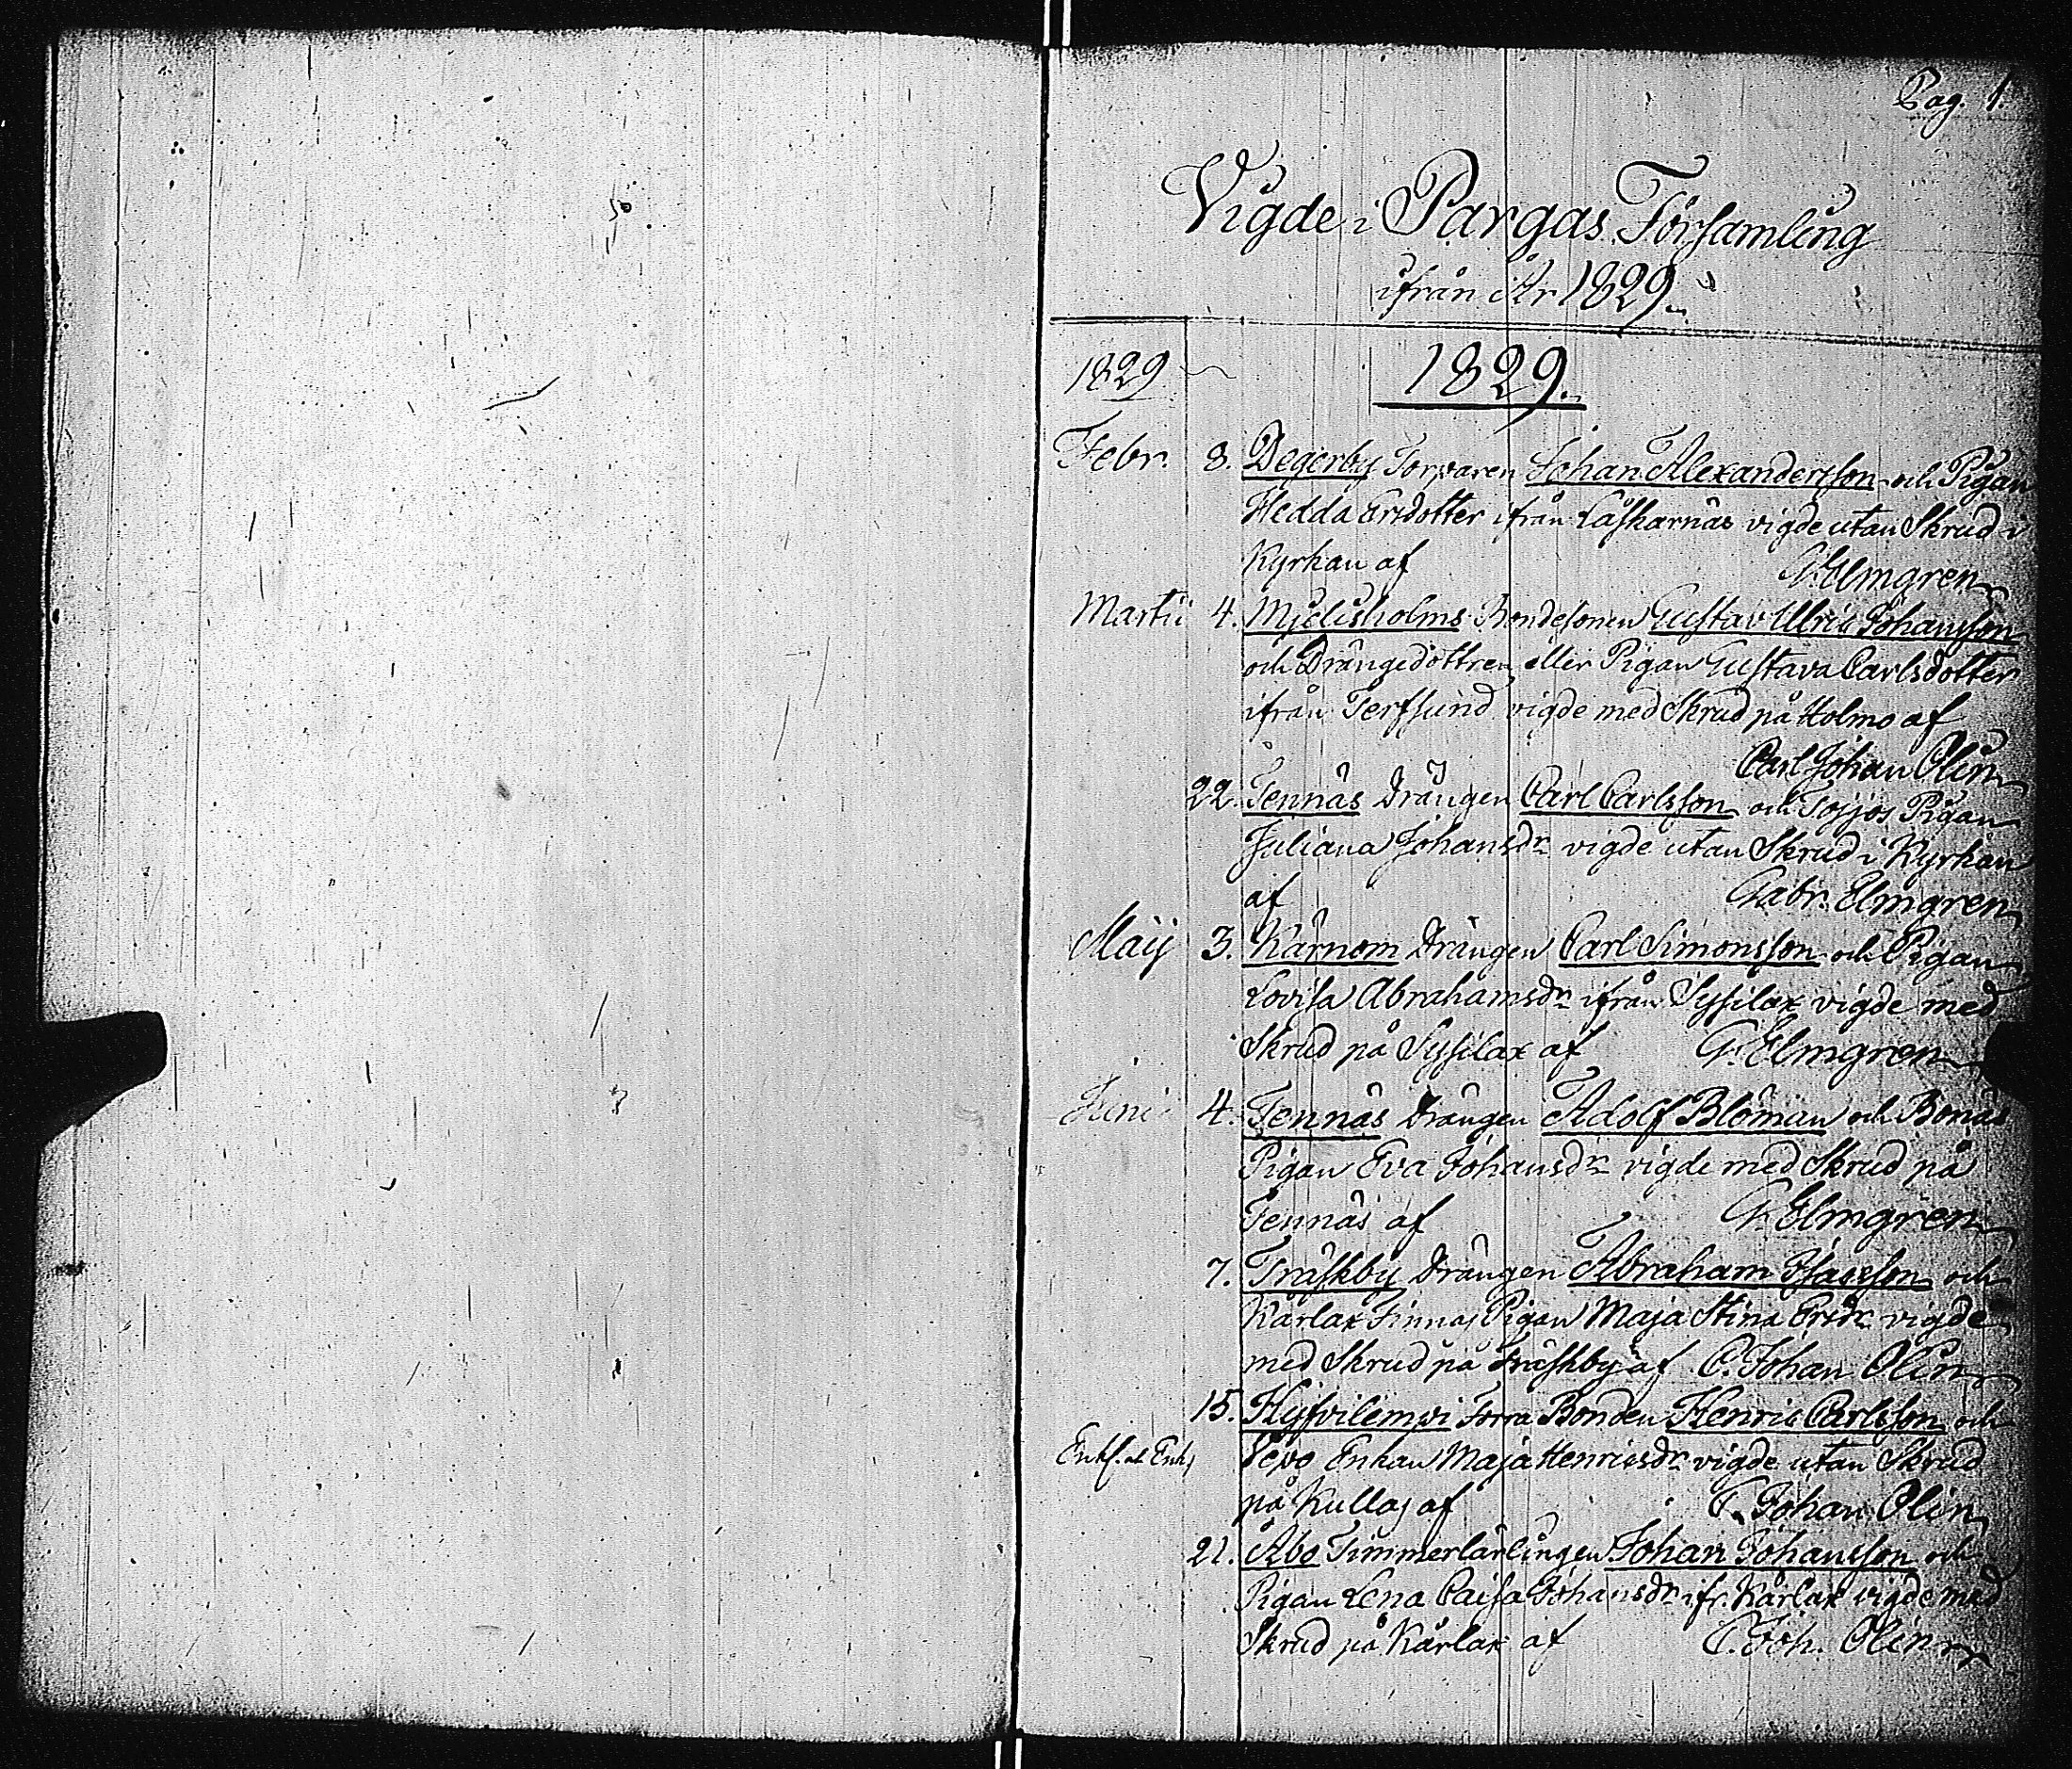 Pag. 1.
Vigde i Pargas Församling
ifrån År 1829.
1829
1829.
Febr. 8. Degerby Torparen Johan Alexandersson och Pigan
Hedda Ersdotter ifrån Låskarnäs vigde utan Skrud i
Kyrkan af G. Elmgren
Martii 4. Mjelisholms Bondesonen Gustav Ulric Johansson
och Drängedottren eller Pigan Gustava Carlsdotter
ifrån Terfsund vigde med Skrud på Holmo af
Carl Johan Olin
22. Tennäs Drängen Carl Carlsson och Pigan
Juliana Johansdr vigde utan Skrud i Kyrkan
af Gabr. Elmgren
Maij 3. Kårnom Drängen Carl Simonsson och Pigan
Lovisa Abrahamsdr ifrån Sysilax vigde med
Skrud på Sysilax af G. Elmgren
Juni 4. Tennäs Drängen Adolf Blöman och Bonäs
Pigan Eva Johansdr vigde med Skrud på
Tennäs af G. Elmgren
7. Träskby Drängen Abraham Isacsson och
Kårlax Finnas Pigan Maja Stina Ersdr vigde
med Skrud på Träskby af C. Johan Olin
15. Kyfvilempi Torra Bonden Henric Carlsson och
Enkl. et Enk, Vepo Enkan Maja Henricsdr vigde utan Skrud
på Kullas af C. Johan Olin
21. Åbo Timmerlärlingen Johan Johansson och
Pigan Lena Caisa Johansdr ifr. Kårlax vigde med
Skrud på Kårlax af C. Joh. Olin